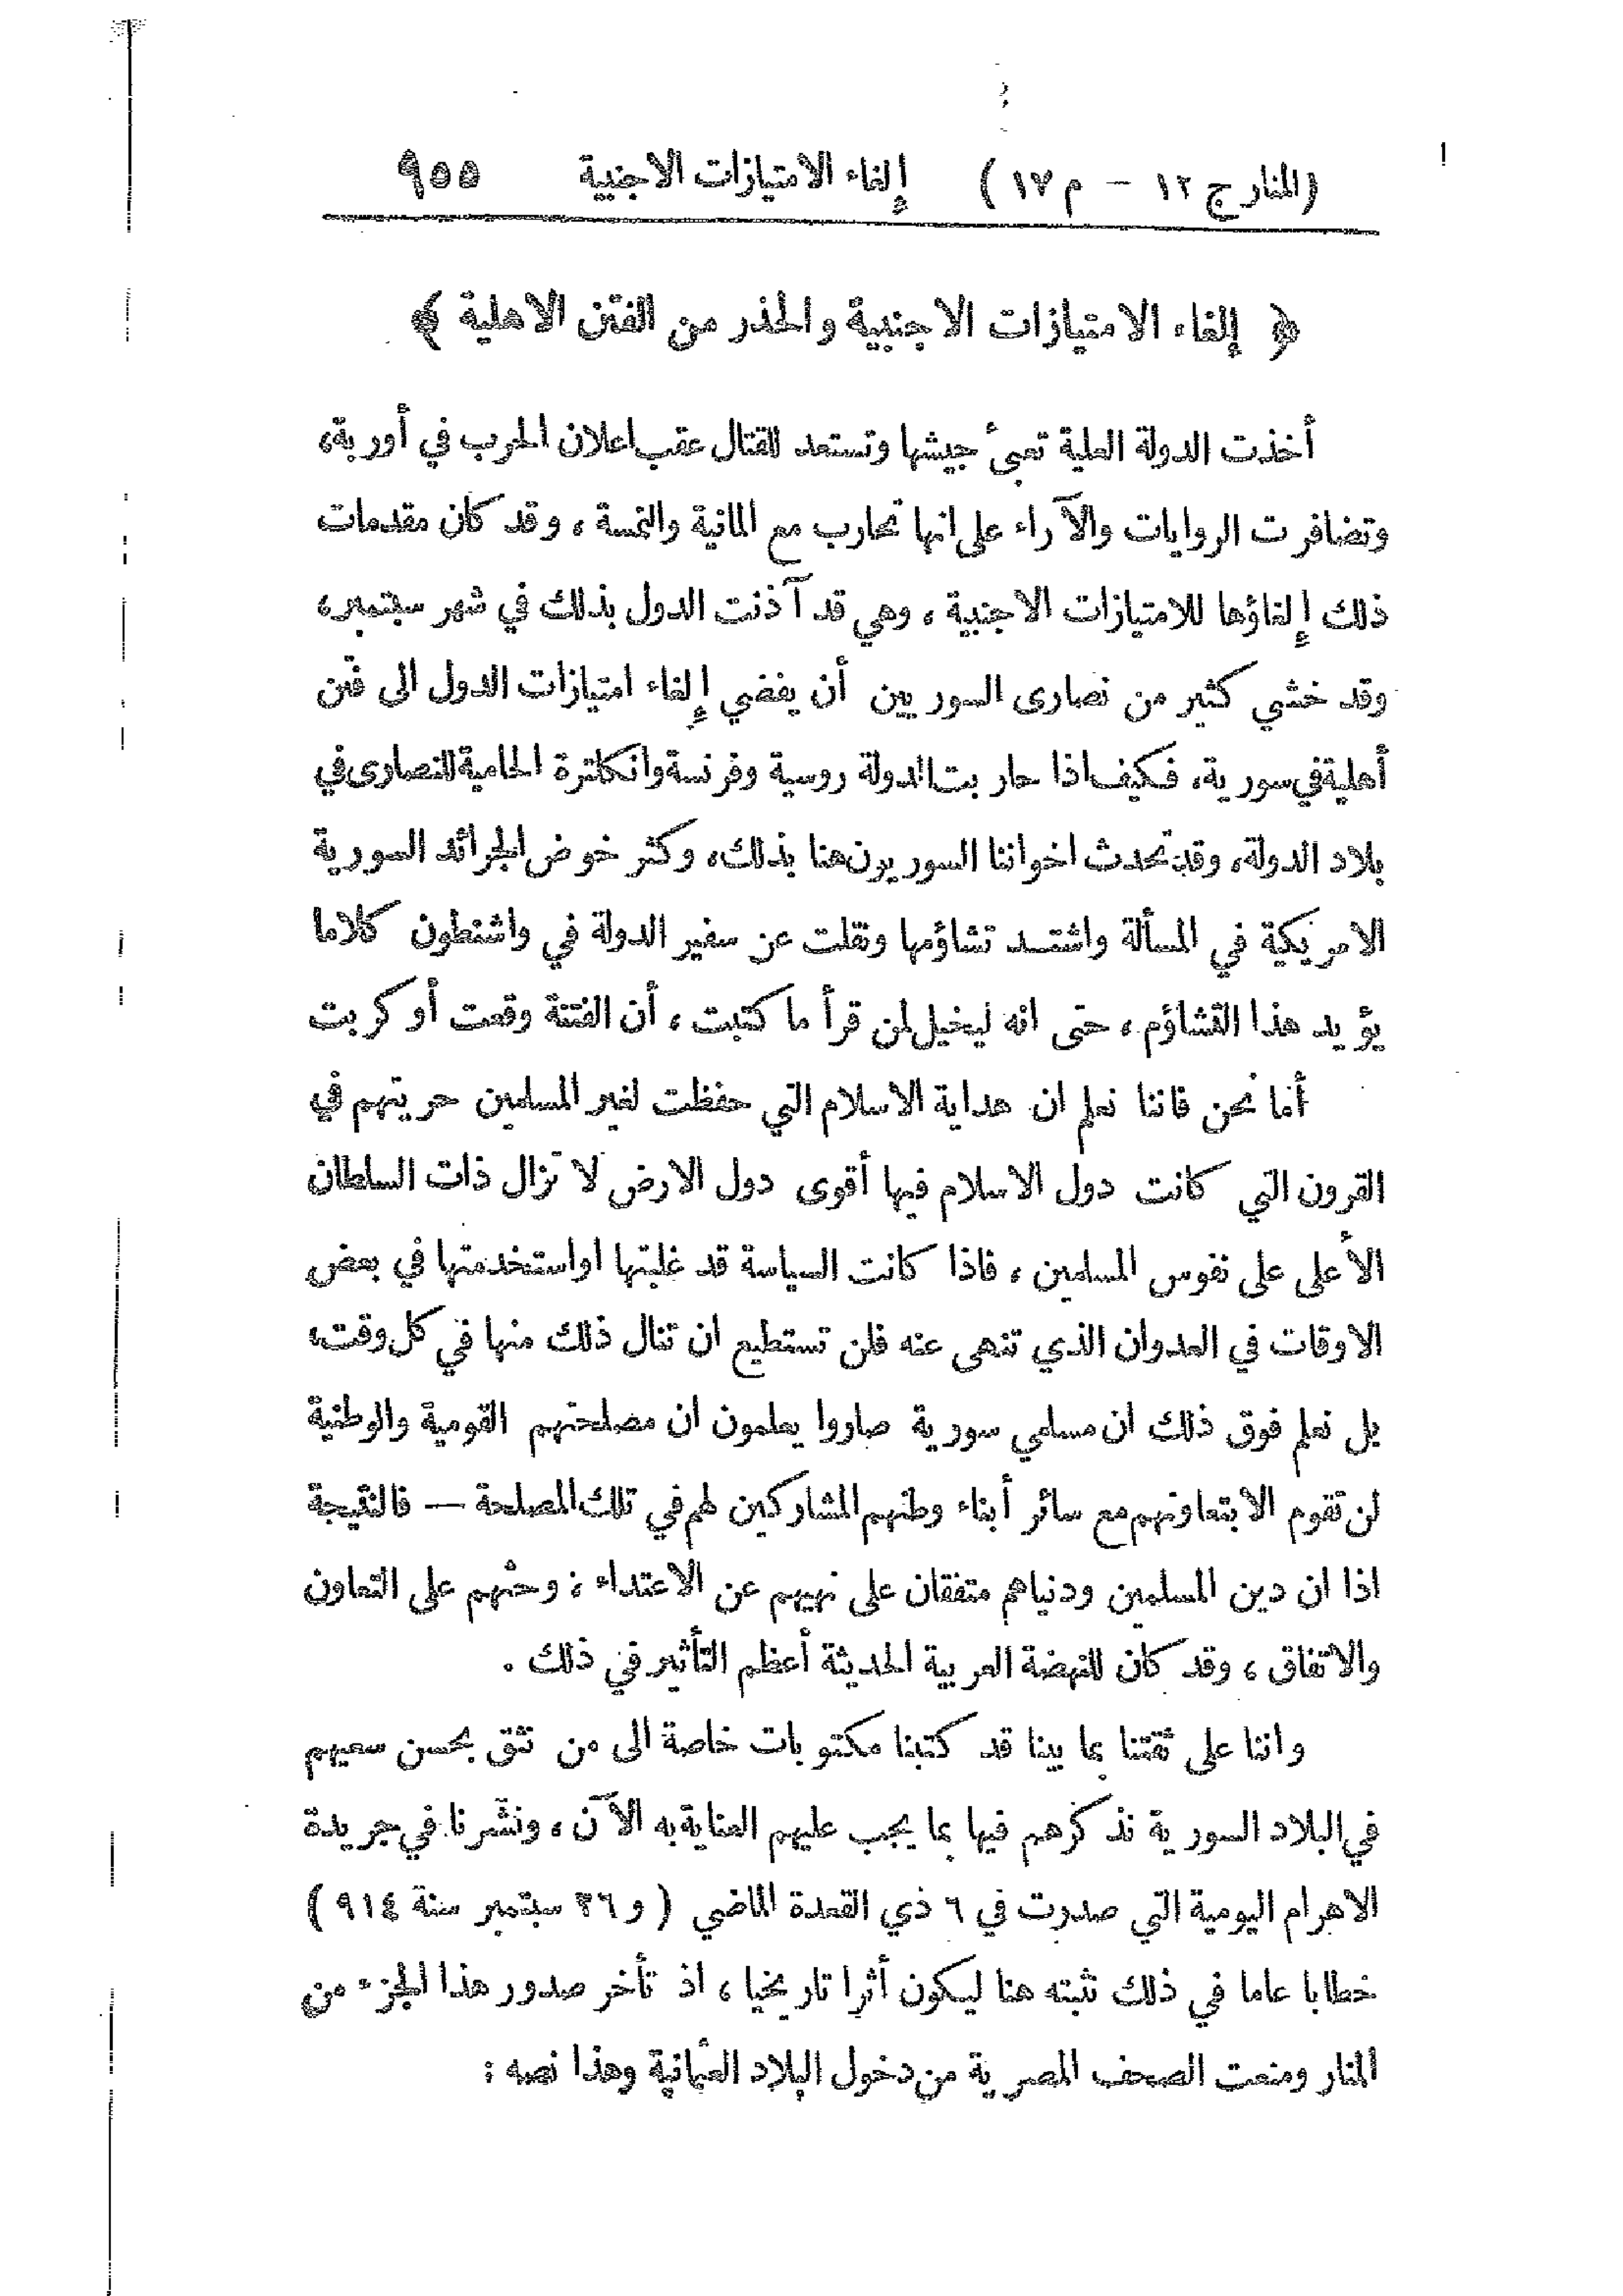 (المنار ج ١٢ – م ١٧) إلغاء الامتيازات الاجنبية ٩٥٥
﴿ إلغاء الامتيازات الاجنبية والحذر من الفتن الاهلية ﴾
أخذت الدولة العلية تعبئ جيشها وتستعد للقتال عقب اعلان الحرب في أوربة،
وتضافرت الروايات والآراء على انها تحارب مع المانية والنمسة ، وقد كان مقدمات
ذلك إلغاؤها للامتيازات الاجنبية ، وهي قد آذنت الدول بذلك في شهر سبتمبر،
وقد خشي كثير من نصارى السوريين أن يفضي إلغاء امتيازات الدول الى فتن
أهلية في سورية، فكيف اذا حاربت الدولة روسية وفرنسة وانكلترة الحامية للنصارى في
بلاد الدولة، وقد تحدث اخواننا السوريون هنا بذلك، وكثر خوض الجرائد السورية
الامريكية في المسألة واشتد تشاؤمها ونقلت عن سفير الدولة في واشنطون كلاما
يؤيد هذا التشاؤم ، حتى انه ليخيل لمن قرأ ما كتبت ، أن الفتنة وقعت أو كربت
أما نحن فاننا نعلم ان هداية الاسلام التي حفظت لغير المسلمين حريتهم في
القرون التي كانت دول الاسلام فيها أقوى دول الارض لا تزال ذات السلطان
الأعلى على نفوس المسلمين ، فاذا كانت السياسة قد غلبتها او استخدمتها في بعض
الاوقات في العدوان الذي تنهى عنه فلن تستطيع ان تنال ذلك منها في كل وقت،
بل نعلم فوق ذلك ان مسلمي سورية صاروا يعلمون ان مصلحتهم القومية والوطنية
لن تقوم الا بتعاونهم مع سائر أبناء وطنهم المشاركين لهم في تلك المصلحة — فالنتيجة
اذا ان دين المسلمين ودنياهم متفقان على نهيهم عن الاعتداء ، وحثهم على التعاون
والاتفاق ، وقد كان للنهضة العربية الحديثة أعظم التأثير في ذلك .
واننا على ثقتنا بما بينا قد كتبنا مكتوبات خاصة الى من نثق بحسن سعيهم
في البلاد السورية نذكرهم فيها بما يجب عليهم العناية به الآن ، ونشرنا في جريدة
الاهرام اليومية التي صدرت في ٦ ذي القعدة الماضي ( و٢٦ سبتمبر سنة ٩١٤ )
خطابا عاما في ذلك نثبته هنا ليكون أثرا تاريخيا ، اذ تأخر صدور هذا الجزء من
المنار ومنعت الصحف المصرية من دخول البلاد العثمانية وهذا نصه :